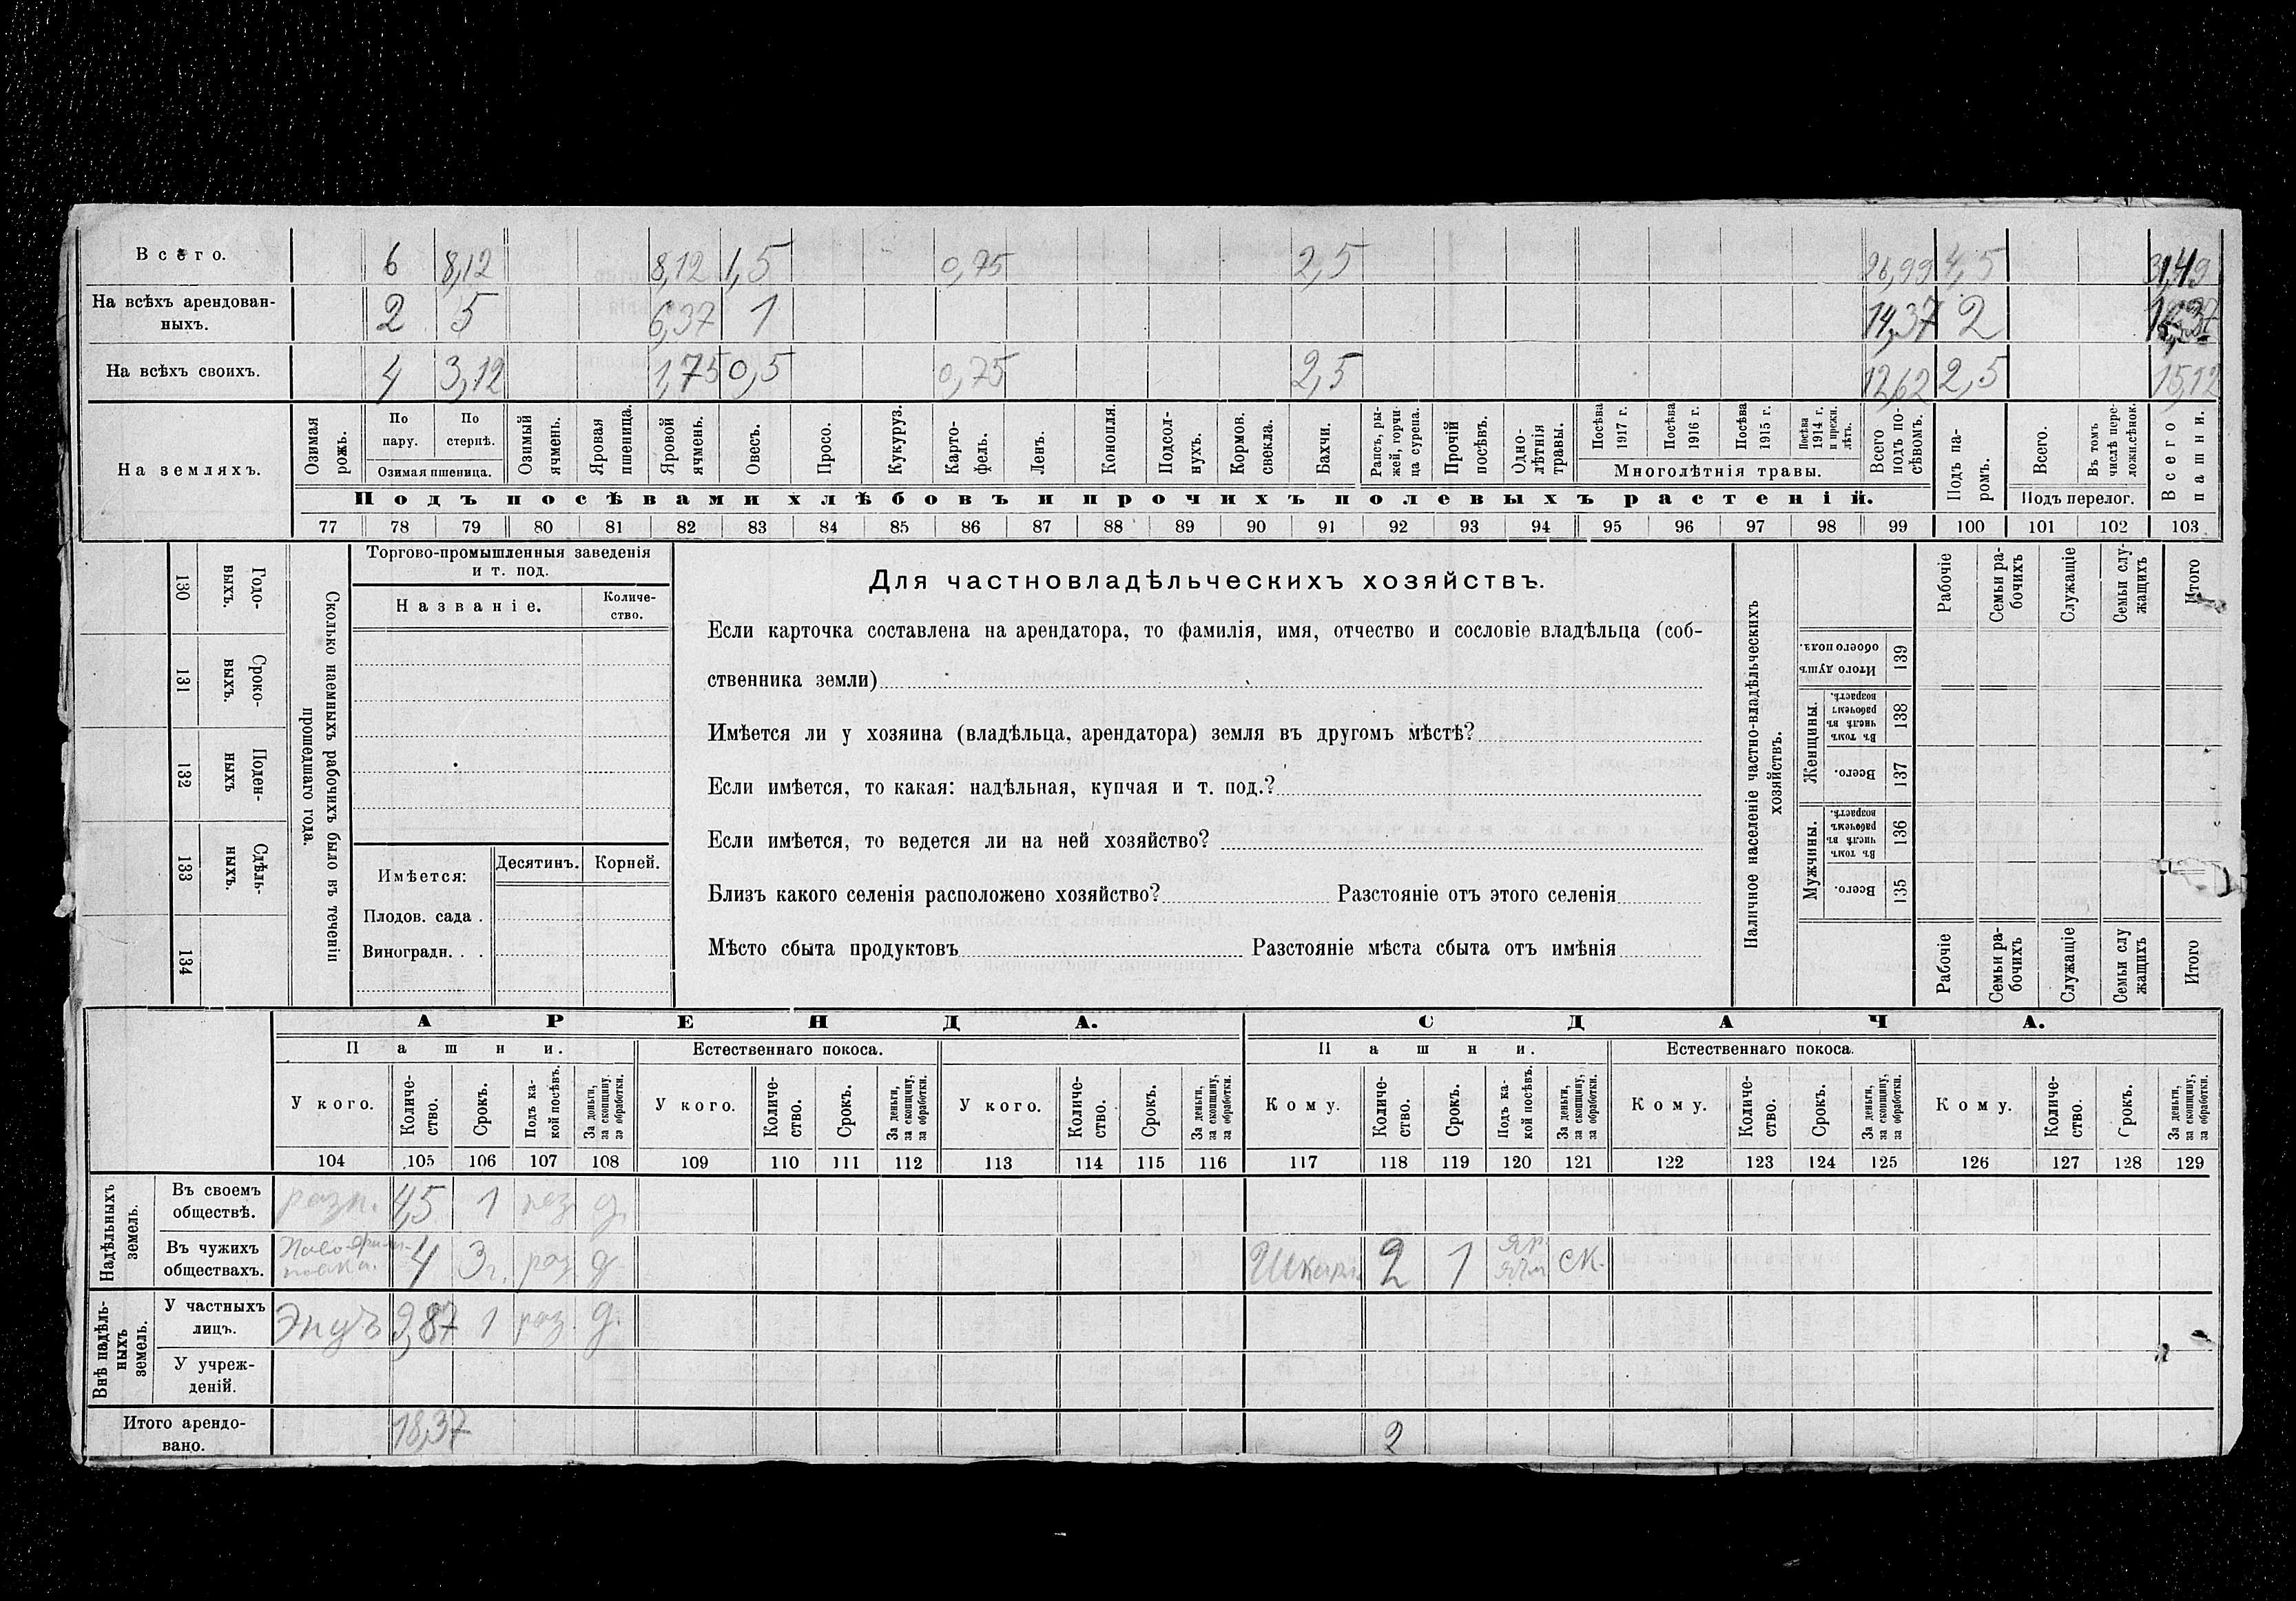 Всего. 6 8,12 8,12 1,5 0,75 2,5 26,99 4,5 31,49
На всѣхъ арендован-
ныхъ. 2 5 6,37 1 14,37 2
На всѣхъ своихъ. 4 3,12 1,75 0,5 0,75 2,5 12,62 2,5 15,12
На земляхъ.
Озимая
рожь.
По
пару.
По
стернѣ.
Озимая пшеница.
Озимый
ячмень.
Яровая
пшеница.
Яровой
ячмень.
Овесъ.
Просо.
Кукуруз.
Карто-
фель.
Ленъ.
Конопля.
Подсол-
нухъ.
Кормов.
свекла.
Бахчи.
Рапсъ, ры-
жей, горчи-
ца сурепа.
Прочій
посѣвъ.
Одно-
лѣтнія
травы.
Посѣва
1917 г.
Посѣва
1916 г.
Посѣва
1915 г.
Посѣва
1914 г.
и прежн.
лѣтъ.
Многолѣтнія травы.
Всего
подъ по-
сѣвомъ.
Подъ па-
ромъ.
Всего.
Въ томъ
числѣ пере-
ложн.сѣнок.
Подъ перелог.
Всего
пашни.
Подъ посѣвами хлѣбовъ и прочихъ полевыхъ растеній.
77 78 79 80 81 82 83 84 85 86 87 88 89 90 91 92 93 94 95 96 97 98 99 100 101 102 103
130 Годо-
выхъ.
131 Сроко-
выхъ.
132 Поден-
ныхъ
133 Сдѣль-
ныхъ.
134
Сколько наемныхъ рабочихъ было въ теченіи
прошедшаго года.
Торгово-промышленныя заведенія
и т. под.
Названіе.
Количе-
ство.
Имѣется:
Десятинъ. Корней.
Плодов. сада .
Виноградн. . .
Для частновладѣльческихъ хозяйствъ.
Если карточка составлена на арендатора, то фамилія, имя, отчество и сословіе владѣльца (соб-
ственника земли)
Имѣется ли у хозяина (владѣльца, арендатора) земля въ другомъ мѣстѣ?
Если имѣется, то какая: надѣльная, купчая и т. под.?
Если имѣется, то ведется ли на ней хозяйство?
Близъ какого селенія расположено хозяйство? Разстояніе отъ этого селенія
Мѣсто сбыта продуктовъ Разстояніе мѣста сбыта отъ имѣнія
Наличное населеніе частно-владѣльческихъ
хозяйствъ.
Рабочіе
Семьи ра-
бочихъ
Служащіе
Семьи слу-
жащихъ
Итого
Итого душъ
обоего пола.
139
Женщины.
Въ томъ
числѣ въ
рабочемъ
возрастѣ.
138
Всего.
137
Мужчины.
Въ томъ
числѣ въ
рабочемъ
возрастѣ.
136
Всего.
135
Рабочіе
Семьи ра-
бочихъ
Служащіе
Семьи слу
жащихъ
Итого
АРЕНДА. СДАЧА.
Пашни. Естественнаго покоса. Пашни. Естественнаго покоса.
У кого.
Количе-
ство.
Срокъ.
Подъ ка-
кой посѣвъ.
За деньги,
за скопщину,
за обработки.
У кого.
Количе-
ство.
Срокъ.
За деньги,
за скопщину,
за обработки.
У кого.
Количе-
ство.
Срокъ.
За деньги,
за скопщину,
за обработки.
Кому.
Количе-
ство.
Срокъ.
Подъ ка-
кой посѣвъ.
За деньги,
за скопщину,
за обработки.
Кому.
Количе-
ство.
Срокъ.
За деньги,
за скопщину,
за обработки.
Кому.
Количе-
ство.
Срокъ.
За деньги,
за скопщину,
за обработки.
104 105 106 107 108 109 110 111 112 113 114 115 116 117 118 119 120 121 122 123 124 125 126 127 128 129
Надѣльныхъ
земель.
Въ своемъ
обществѣ. разн. 4,5 1 раз д.
Въ чужихъ
обществахъ. 4 3 г. раз д 2 1 яр. ячм ск.
Внѣ надѣль-
ныхъ
земель.
У частныхъ
лицъ. 9,87 1 раз. д.
У учреж-
деній.
Итого арендо-
вано. 18,37 2